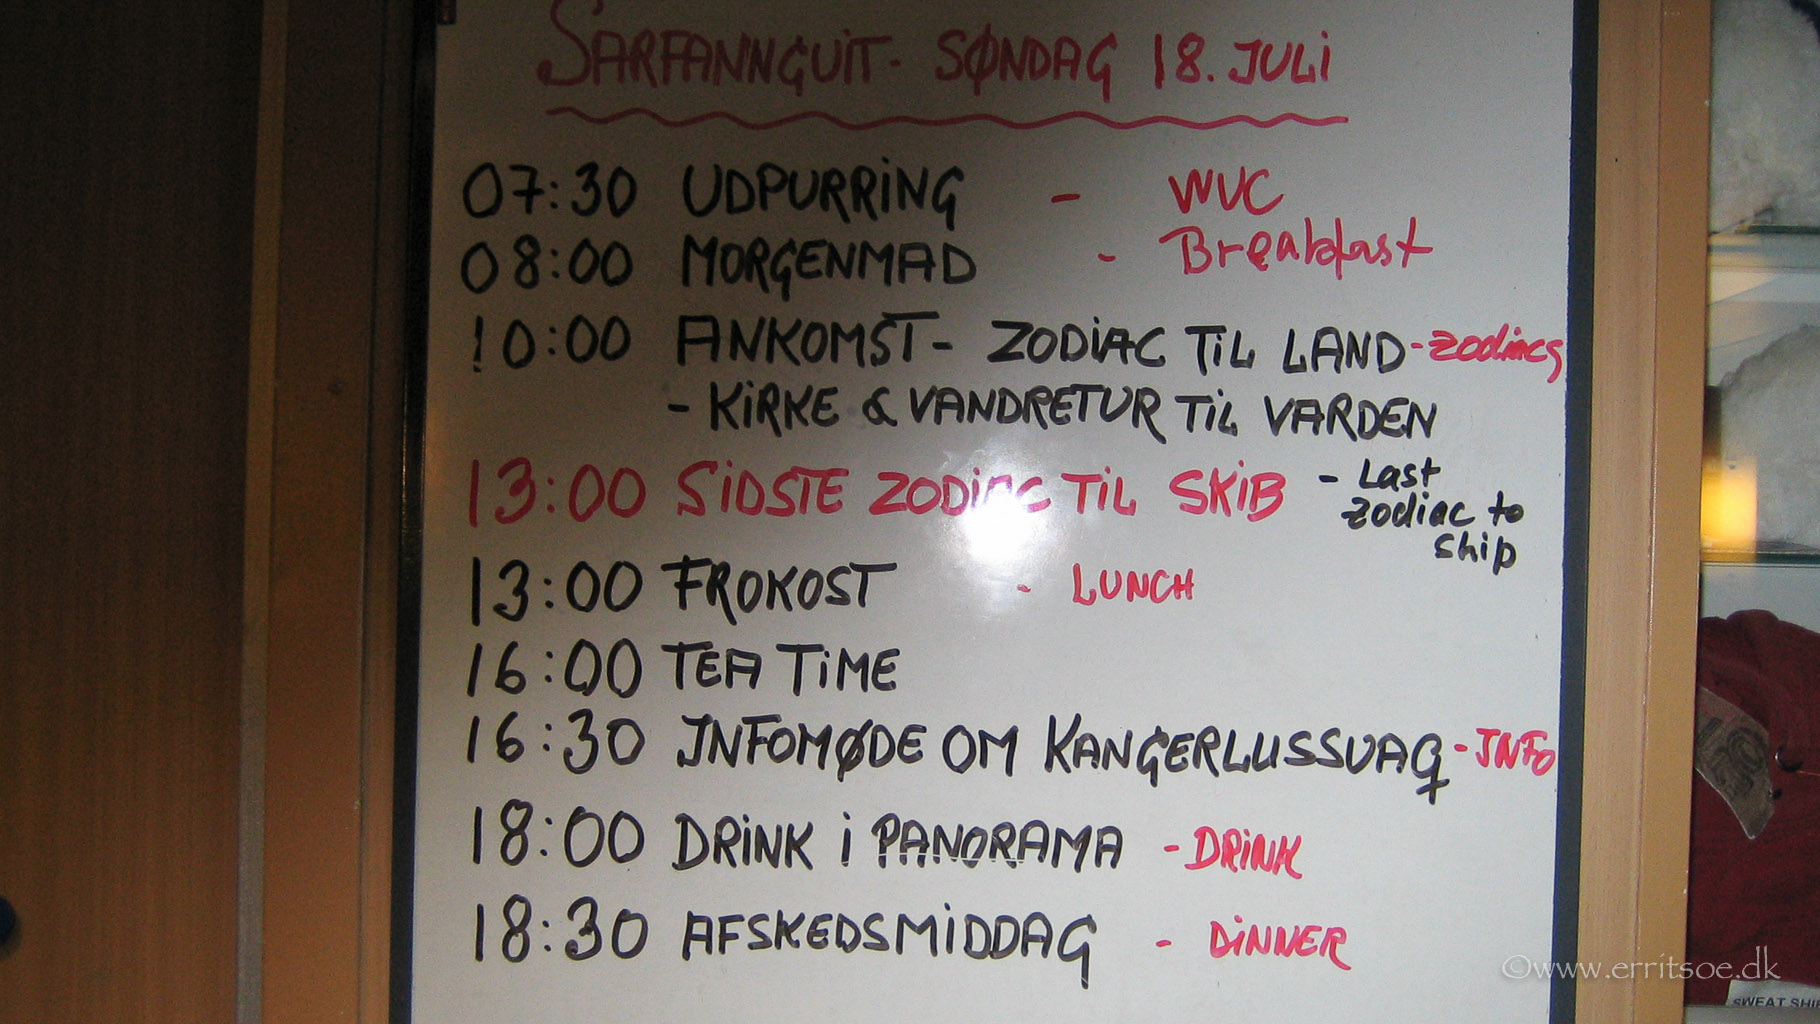 SARFANNGUIT - SØNDAG 18. JULI
07:30 UDPURRING - WUC
08:00 MORGENMAD - Breakfast
10:00 ANKOMST - ZODIAC TIL LAND - zodiacs
- KIRKE & VANDRETUR TIL VARDEN
13:00 SIDSTE ZODIAC TIL SKIB - Last
zodiac to
ship
13:00 FROKOST - LUNCH
16:00 TEA TIME
16:30 INFOMØDE OM KANGERLUSSUAQ - INFO
18:00 DRINK I PANORAMA - DRINK
18:30 AFSKEDSMIDDAG - DINNER
©www.erritsoe.dk